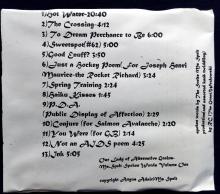 1)Got Water-20:40
2)The Crossing-4:12
3)To Dream Perchance to Be 6:00
4)Sweetspot(#62) 5:00
5)Good Stuff? 3:50
6)Just a Hockey Poem! For Joseph Henri
Maurice-the Rocket Richard) 3:54
7)Spring Training 2:24
8)Haiku Kisses 1:45
9)P.D.A.
Public Display of Affection) 2:29
10)Conjure (for Salmon Avalache) 5:00
11)You Were (for GB) 2:14
12)Not an AIDS poem 4:25
13)Ink 5:05
Our Lady of Alternative Codas-
Mo Spills Spoken Words Vol One
copyright Angie Adair/Mo Spills
spoken words by The